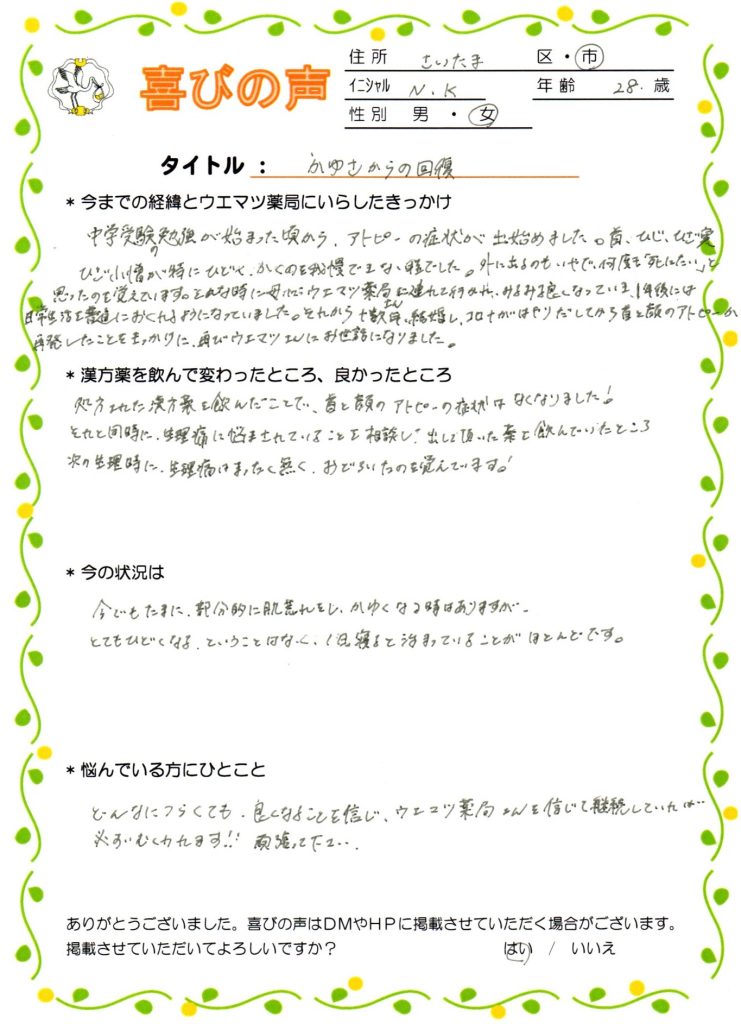 喜びの声
住所 さいたま 区・市
イニシャル N.K 年齢 28.歳
性別 男・女
タイトル： かゆさからの回復
* 今までの経緯とウエマツ薬局にいらしたきっかけ
中学受験の勉強が始まった頃から、アトピーの症状が出始めました。首、ひじ、ひざ裏
ひざ小僧が特にひどく、かくのを我慢できない程でした。外に出るのもいやで、何度も「死にたい」と
思ったのを覚えています。そんな時に母にウエマツ薬局さんに連れて行かれ、みるみる良くなっていき、1年後には
日常生活を普通におくれるようになっていました。それから十数年、結婚し、コロナがはやりだしてから首と顔のアトピーが
再発したことをきっかけに、再びウエマツさんにお世話になりました。
* 漢方薬を飲んで変わったところ、良かったところ
処方された漢方薬を飲んだことで、首と顔のアトピーの症状はなくなりました！
それと同時に、生理痛に悩まされていることを相談し、出して頂いた薬を飲んでいったところ
次の生理時に、生理痛はまったく無く、おどろいたのを覚えています！
* 今の状況は
今でもたまに、部分的に肌荒れをし、かゆくなる時はありますが、
とてもひどくなる、ということはなく、1日寝ると治まっていることがほとんどです。
* 悩んでいる方にひとこと
どんなにつらくても、良くなることを信じ、ウエマツ薬局さんを信じて継続していれば
必ずむくわれます!! 頑張って下さい。
ありがとうございました。喜びの声はＤＭやＨＰに掲載させていただく場合がございます。
掲載させていただいてよろしいですか？ はい / いいえ